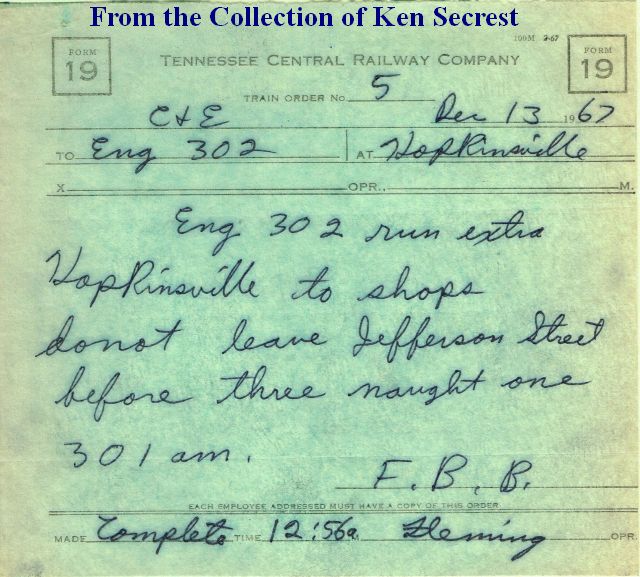 From the Collection of Ken Secrest
100M 2-67
FORM 19
TENNESSEE CENTRAL RAILWAY COMPANY
FORM 19
TRAIN ORDER No. 5
C & E Dec 13 1967
TO Eng 302 AT Hopkinsville
X OPR., M.
Eng 302 run extra
Hopkinsville to shops
donot leave Jefferson Street
before three naught one
301 am.
F. B. B.
EACH EMPLOYEE ADDRESSED MUST HAVE A COPY OF THIS ORDER
MADE Complete TIME 12:56a Fleming OPR.